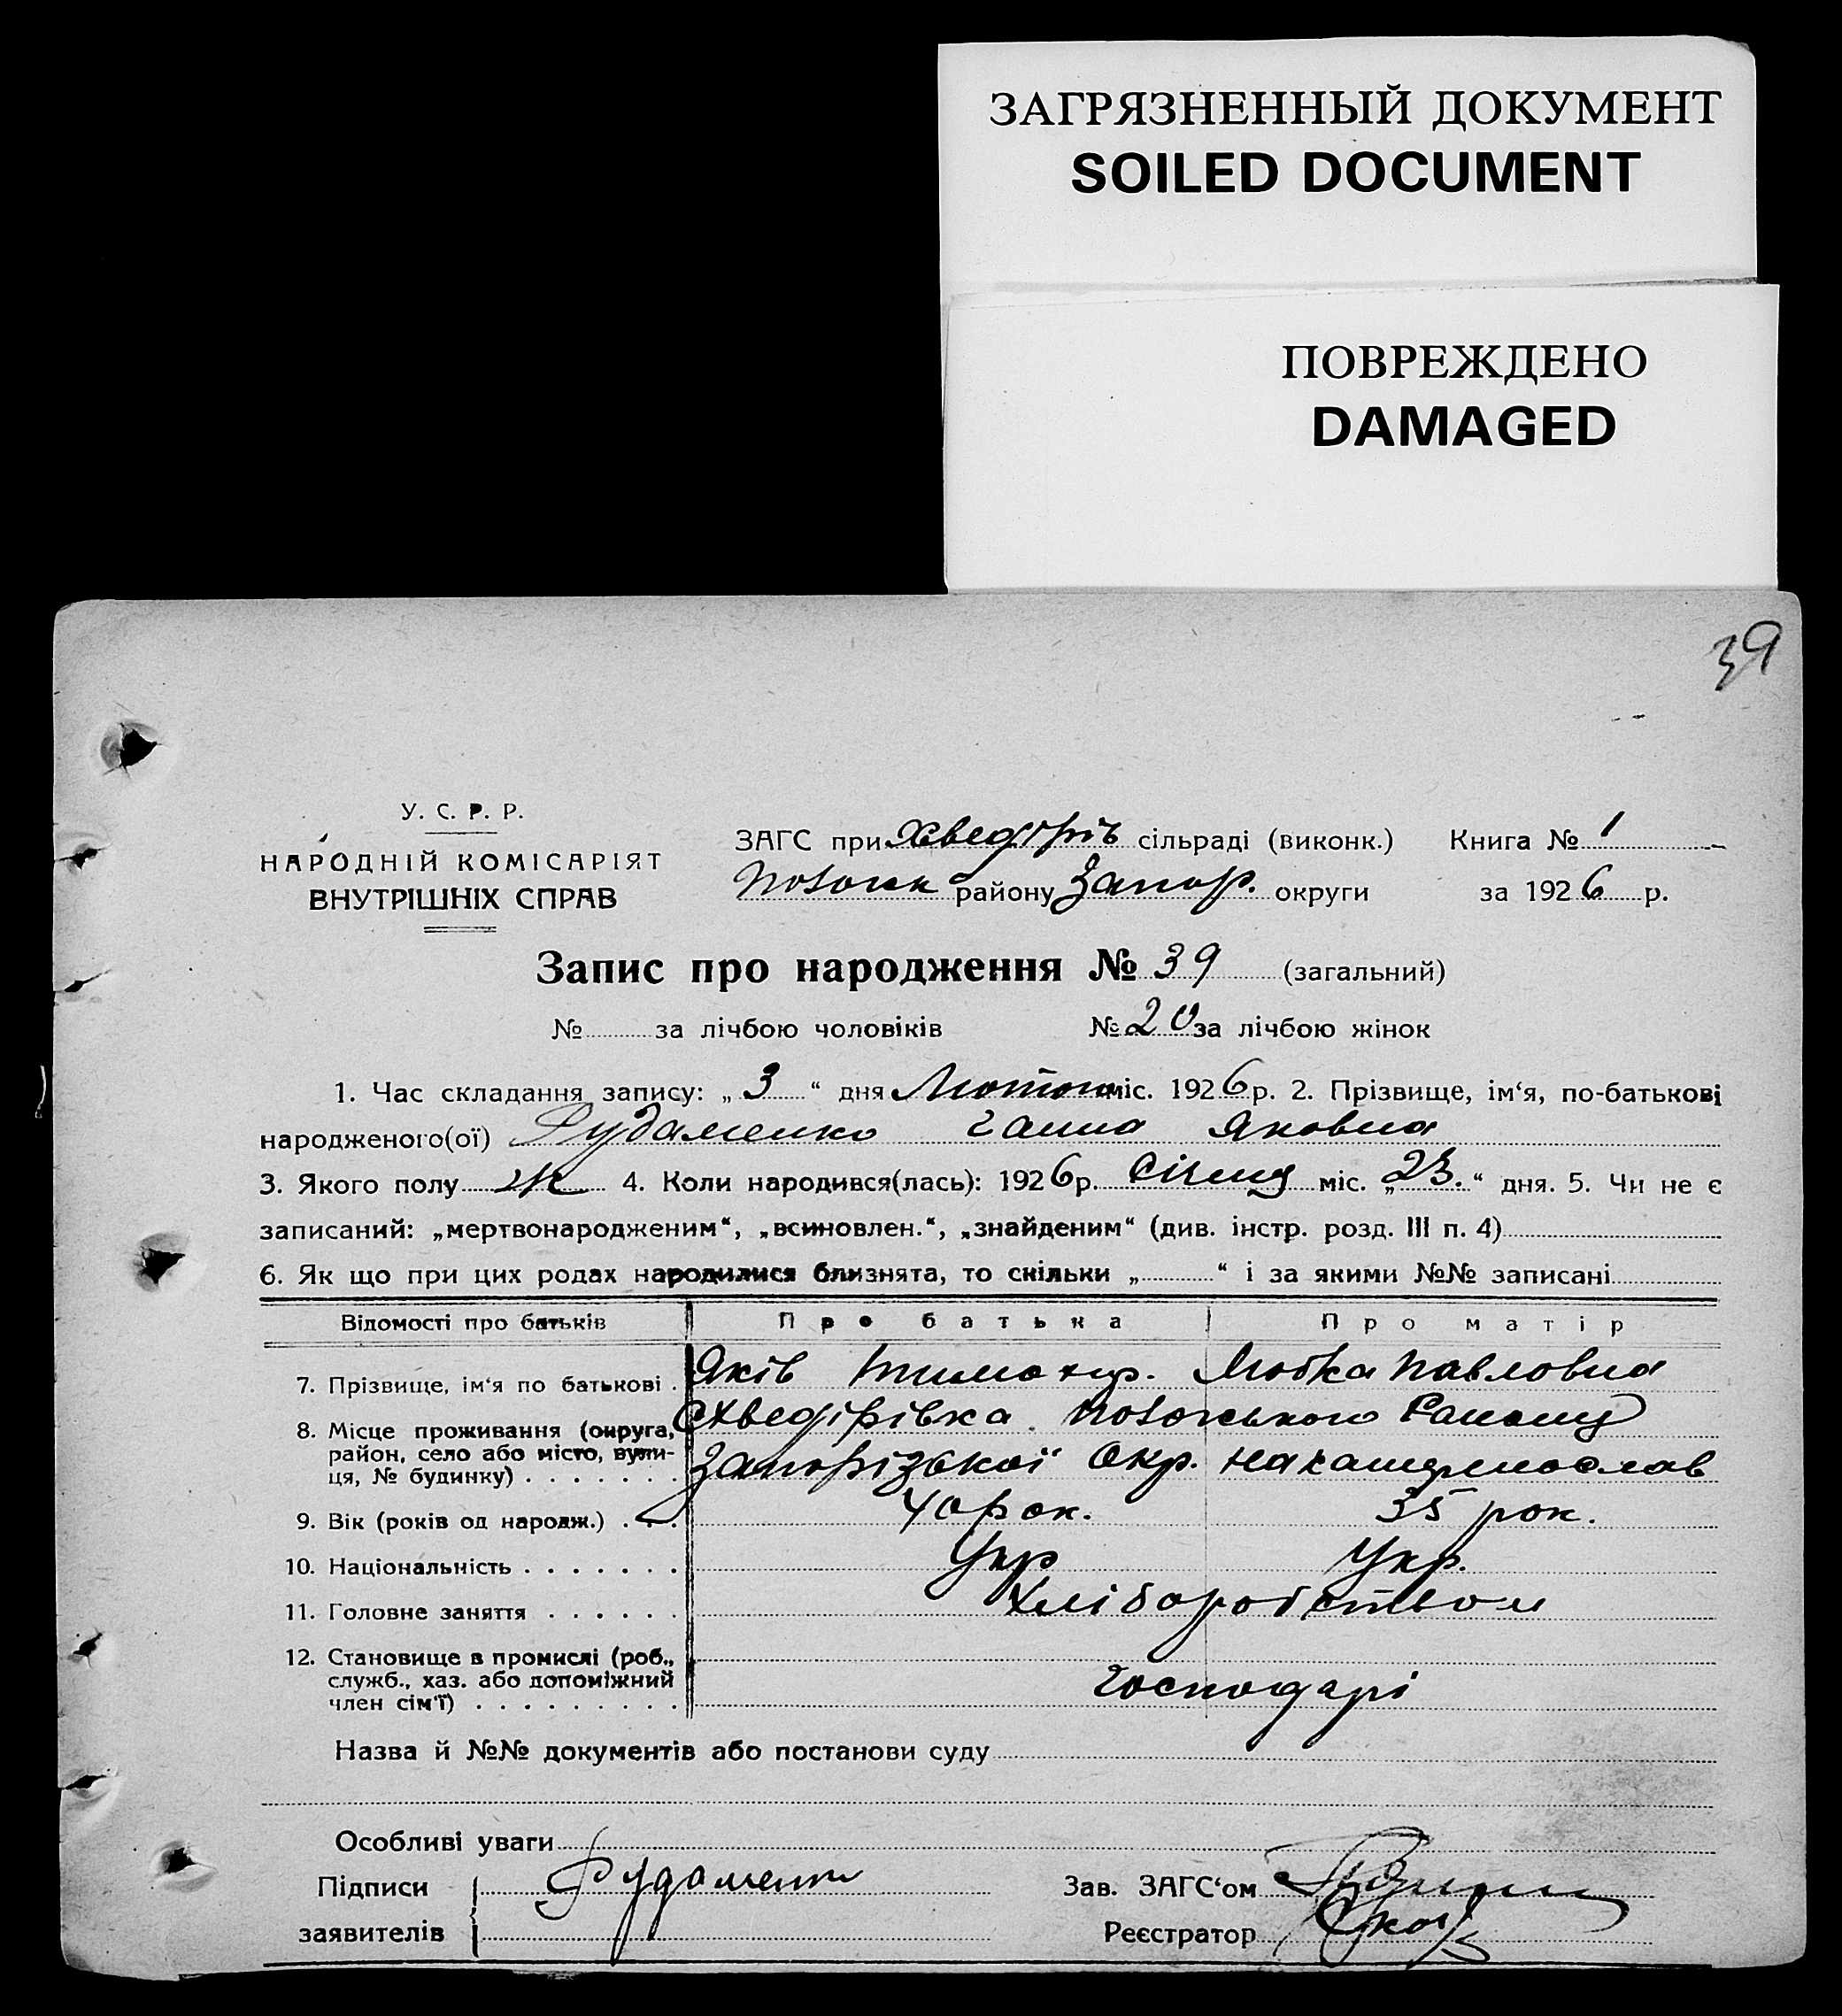 ЗАГРЯЗНЕННЫЙ ДОКУМЕНТ
SOILED DOCUMENT
ПОВРЕЖДЕНО
DAMAGED
39
У. С. Р. Р.
НАРОДНІЙ КОМІСАРІЯТ
ВНУТРІШНІХ СПРАВ
ЗАГС при Хведірів сільраді (виконк.) Книга № 1
району Запор. округи за 1926 р.
Запис про народження № 39 (загальний)
№ за лічбою чоловіків № 20 за лічбою жінок
1. Час складання запису: „ 3 “ дня Лютого міс. 1926 р. 2. Прізвище, ім‘я, по-батькові
народженого(ої) Рудаменко Ганна Яковна
3. Якого полу Ж 4. Коли народився(лась): 1926 р. Січня міс. „ 23. “ дня. 5. Чи не є
записаний: „мертвонародженим“, „всиновлен.“, „знайденим“ (див. інстр. розд. III п. 4)
6. Як що при цих родах народилися близнята, то скільки „ “ і за якими №№ записані
Відомості про батьків Про батька Про матір
7. Прізвище, ім‘я по батькові . Яків Тимохв. Любка Павловна
8. Місце проживання (округа, район, село або місто, вулиця, № будинку) . . . . . . . Хведірівка Району
Запорізької Окр.
9. Вік (років од народж.) . . . 40 рок. 35 рок.
10. Національність . . . . . . . Укр Укр.
11. Головне заняття . . . . . . Хліборобством
12. Становище в промислі (роб., служб., хаз. або допоміжний член сім‘ї) . . . . . . . . . Господарі
Назва й №№ документів або постанови суду
Особливі уваги
Підписи
заявителів
Рудаменко
Зав. ЗАГС‘ом
Реєстратор